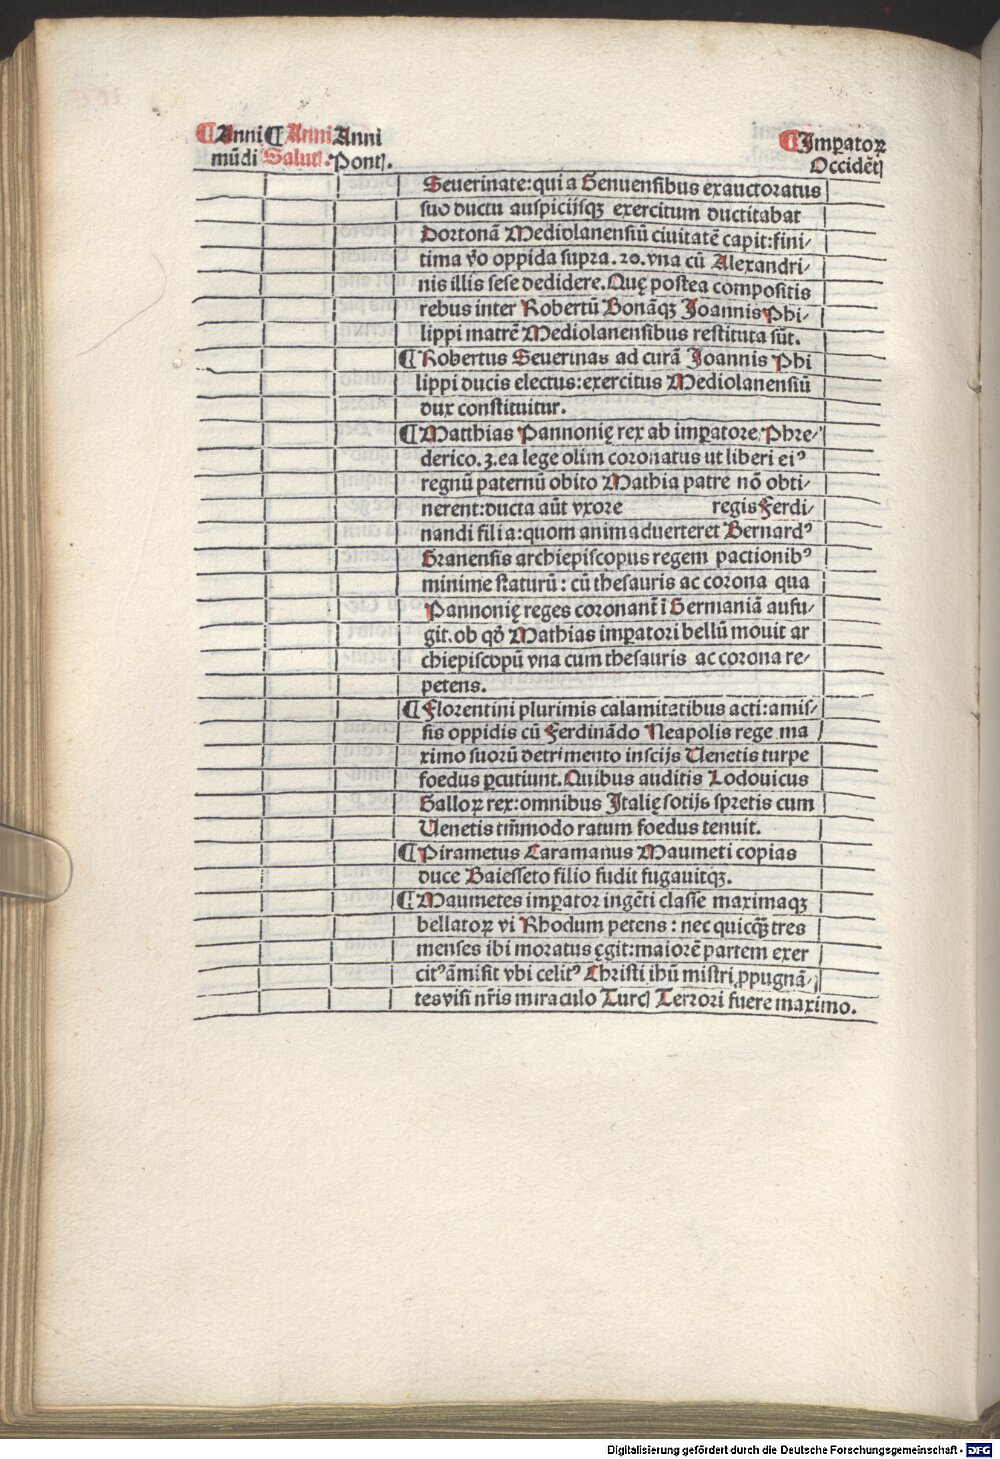 ¶Anni ¶ Anni Anni ¶Imꝑatoꝝ
mūdi Salutꝭ. Pontꝭ. Occidētꝭ
Seuerinate:qui a Genuensibus exauctoratus
suo ductu auspicijsqꝫ exercitum ductitabat
Dortonā Mediolanensiū ciuitatē capit:fini⸗
tima v̄o oppida supra.20.vna cū Alexandri⸗
nis illis sese dedidere.Quę postea compositis
rebus inter Robertū Bonāqꝫ Joannis Phi⸗
lippi matrē Mediolanensibus restituta sūt.
¶Robertus Seuerinas ad curā Joannis Phi
lippi ducis electus:exercitus Mediolanensiū
dux constituitur.
¶Matthias Pannonię rex ab imꝑatore Phre⸗
derico.3.ea lege olim coronatus ut liberi eiꝰ
regnū paternū obito Mathia patre nō obti⸗
nerent:ducta aūt vxore regis Ferdi⸗
nandi filia:quom animaduerteret Bernardꝰ
Granensis archiepiscopus regem pactionibꝰ
minime staturū: cū thesauris ac corona qua
Pannonię reges coronant̄ ī Germaniā aufu⸗
git.ob qd̄ Mathias imꝑatori bellū mouit ar
chiepiscopū vna cum thesauris ac corona re⸗
petens.
¶Florentini plurimis calamitatibus acti:amis⸗
sis oppidis cū Ferdinādo Neapolis rege ma
ximo suorū detrimento inscijs Uenetis turpe
foedus ꝑcutiunt.Quibus auditis Lodouicus
Galloꝝ rex:omnibus Italię sotijs spretis cum
Uenetis tm̄modo ratum foedus tenuit.
¶Pirametus Caramanus Maumeti copias
duce Baiesseto filio fudit fugauitqꝫ.
¶Maumetes imꝑator ingēti classe maximaqꝫ
bellatoꝝ vi Rhodum petens: nec quicq̄ꝫ tres
menses ibi moratus ęgit:maiorē partem exer
citꝰ āmisit vbi celitꝰ Christi ihū mistri ꝓpugnā⸗
tes visi nr̄is miraculo Turcꝭ Terrori fuere maximo.
Digitalisierung gefördert durch die Deutsche Forschungsgemeinschaft - DFG